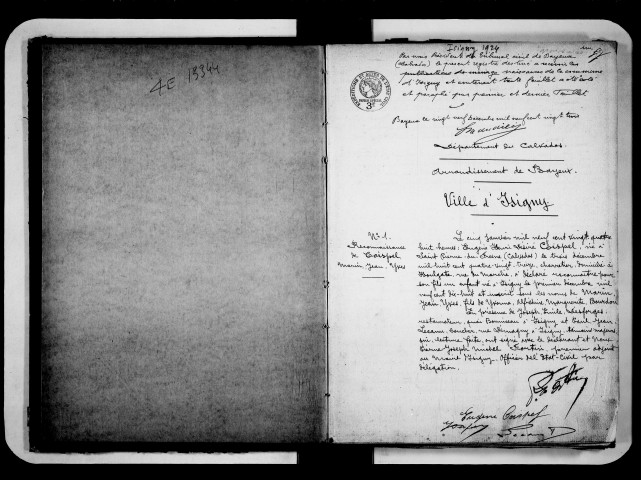 4E 13344
Isigny 1924
Par nous Président du Tribunal civil de Bayeux
(Calvados) le présent registre destiné à recevoir les
publications de mariage naissances de la commune
d'Isigny et contenant feuillet a été coté
et paraphé par premier et dernier feuillet
Bayeux le vingt neuf décembre mil neuf cent vingt trois
3F
Département du Calvados.
Arrondissement de Bayeux.
Ville d'Isigny
N° 1.
Reconnaissance
de Coispel
Marin, Jean, Yves
Le cinq janvier mil neuf cent vingt quatre
huit heures; Eugène Henri Désiré Coispel, né à
Saint Pierre du (Calvados) le treize décembre
mil huit cent quatre vingt treize, charretier, domicilié à
rue du Marché, a déclaré reconnaître pour
son fils un enfant né à Isigny le premier décembre mil
neuf cent dix-huit et inscrit sous les noms de Marin,
Jean Yves, fils de Yvonne, Marguerite, Bourdon
En présence de Joseph, Emile, Desforges,
restaurateur, à Isigny et Jean
boucher, rue à Isigny, témoins majeurs
qui, lecture faite, ont signé avec le déclarant et Nous
Pierre Joseph Michel premier adjoint
au Maire d'Isigny, Officier de l'Etat-Civil par
délégation.
Eugène Coispel